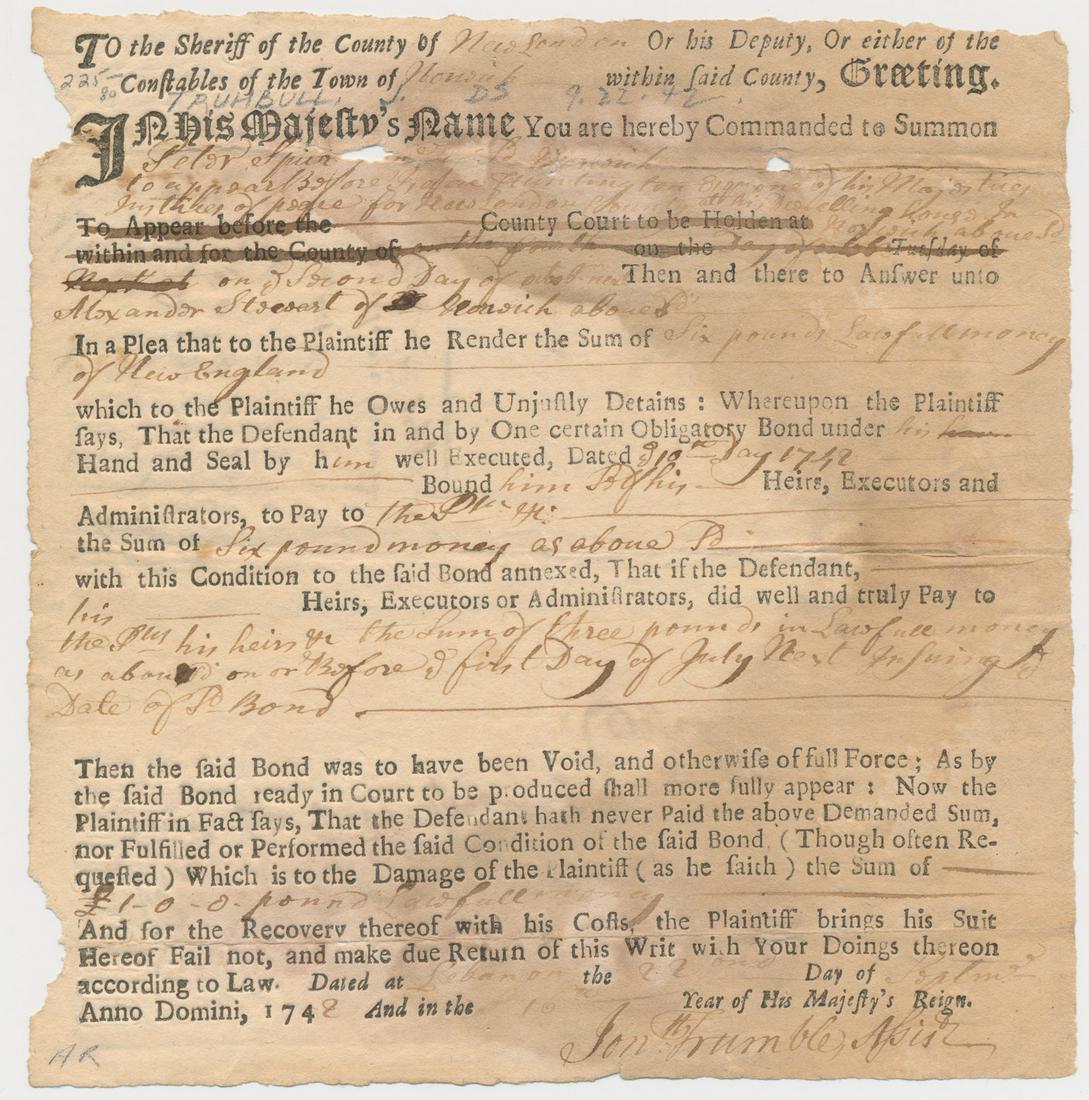 To the Sheriff of the County of New London Or his Deputy, Or either of the
Conſtables of the Town of Norwich within ſaid County, Græting.
225-
80
TRUMBULL, J. DS 9.22.42.
IN His Majeſty's Name You are hereby Commanded to Summon
Peter Spicer Norwich
to appear Before Huntington Esqr one of his Majesties
Justices of peace for New London County att his Dwelling house In
To Appear before the County Court to be Holden at Norwich aboues'd
within and for the County of on the Tueſday of
on ye Second Day of Then and there to Anſwer unto
Alexander Stewart of Norwich aboues'd
In a Plea that to the Plaintiff he Render the Sum of Six pounds Lawfull money
of New England
which to the Plaintiff he Owes and Unjuſtly Detains : Whereupon the Plaintiff
ſays, That the Defendant in and by One certain Obligatory Bond under his
Hand and Seal by him well Executed, Dated ye 10th Day 1742
Bound him his Heirs, Executors and
Adminiſtrators, to Pay to the &c
the Sum of Six pound money as aboue sd
with this Condition to the ſaid Bond annexed, That if the Defendant,
his Heirs, Executors or Adminiſtrators, did well and truly Pay to
the his heirs &c the Sum of three pounds in Lawfull money
as aboues'd on or Before ye first Day of July Next Insuing ye
Date of sd Bond.
Then the ſaid Bond was to have been Void, and otherwiſe of full Force ; As by
the ſaid Bond ready in Court to be produced ſhall more fully appear : Now the
Plaintiff in Fact ſays, That the Defendant hath never Paid the above Demanded Sum,
nor Fulfilled or Performed the ſaid Condition of the ſaid Bond, ( Though often Re-
queſted ) Which is to the Damage of the Plaintiff ( as he ſaith ) the Sum of
£1-0-0- pound Lawfull money
And for the Recovery thereof with his Coſts, the Plaintiff brings his Suit
Hereof Fail not, and make due Return of this Writ with Your Doings thereon
according to Law. Dated at Lebanon the 22nd Day of Septmbr
Anno Domini, 1742 And in the 16 Year of His Majeſty's Reign.
Jonth Trumble, Assist
AR